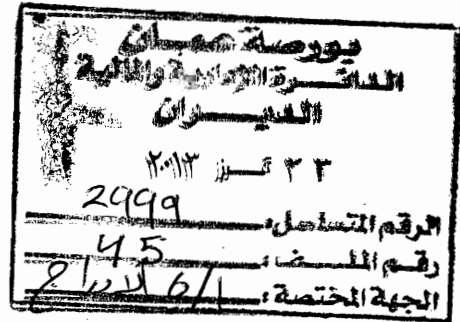 بورصة عمان
الدائرة الإدارية والمالية
الديوان
٢٣ تموز ٢٠١٣
الرقم المتسلسل: 2999
رقم الملف: 45
الجهة المختصة: 6/1 الادراج